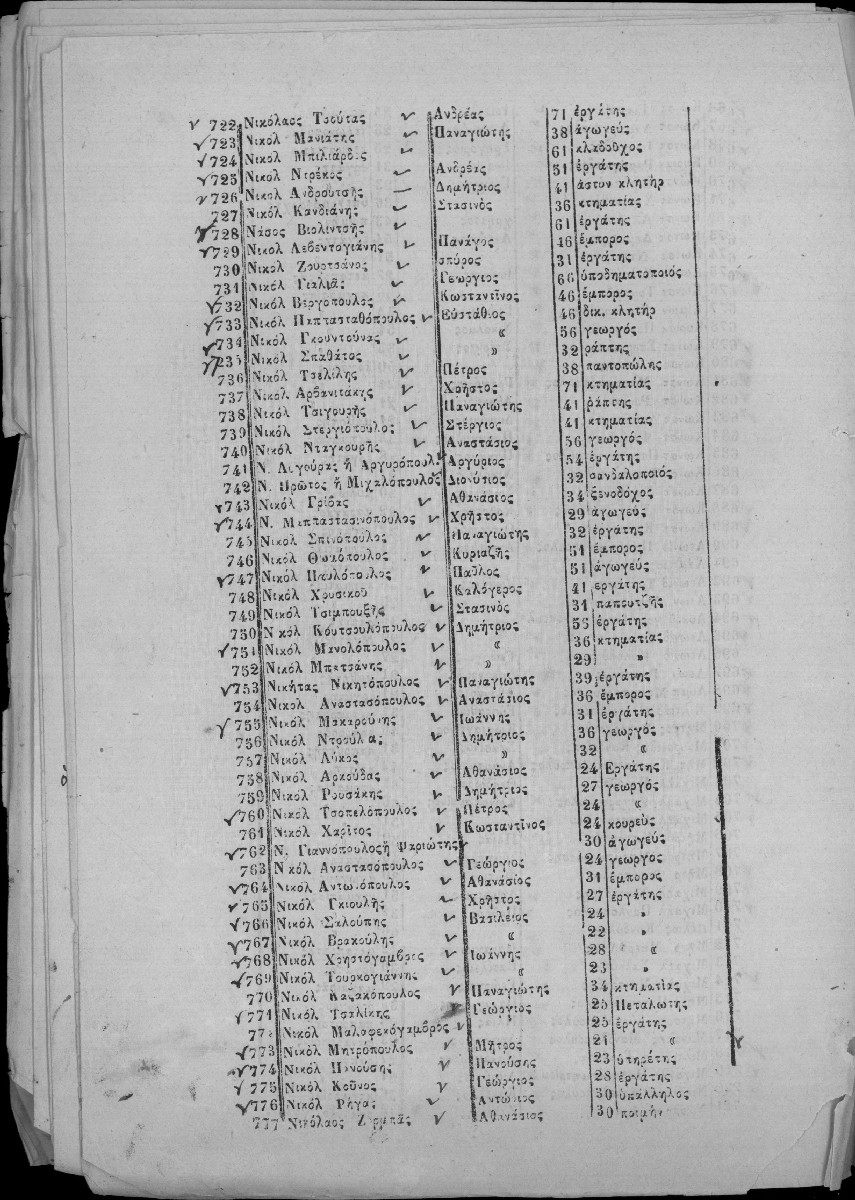 722 Νικόλαος Τσούτας Ἀνδρέας 71 ἐργάτης
723 Νικόλ Μανιάτης Παναγιώτης 38 ἀγωγεύς
724 Νικόλ Μπιλιάρδος 61 κλειδοῦχος
725 Νικόλ Ντρέκος Ἀνδρέας 51 ἐργάτης
726 Νικολ Ἀνδρουτσῆς Δημήτριος 41 ἀστυν κλητήρ
727 Νικόλ Κανδιάνης Στασινὸς 36 κτηματίας
728 Νάσος Βιολιντσῆς 61 ἐργάτης
729 Νικόλ Λεβεντογιάνης Πανάγος 46 ἔμπορος
730 Νικολ Ζουρτσάνος σπύρος 31 ἐργάτης
731 Νικόλ Γιαλιᾶς Γεώργιος 66 ὑποδηματοποιός
732 Νικόλ Βεργοπουλος Κωσταντῖνος 46 ἔμπορος
733 Νικόλ Παπασταθόπουλος Εὐστάθιος 46 δικ. κλητήρ
734 Νικόλ Γκουντούνας « 56 γεωργός
735 Νικόλ Σπαθάτος » 32 ράπτης
736 Νικόλ Τσελίλης Πέτρος 38 παντοπώλης
737 Νικόλ Ἀρβανιτάκης Χρῆστος 71 κτηματίας
738 Νικόλ Τσιγουρῆς Παναγιώτης 41 ῥάπτης
739 Νικόλ Στεργιόπουλος Στέργιος 41 κτηματίας
740 Νικόλ Νταγκουρῆς Ἀναστάσιος 56 γεωργός
741 Ν. Λιγούρας ἢ Ἀργυρόπουλ. Ἀργύριος 54 ἐργάτης
742 Ν. Πρῶτος ἢ Μιχαλόπουλος Διονύσιος 32 σανδαλοποιός
743 Νικόλ Γρίβας Ἀθανάσιος 34 ξενοδόχος
744 Ν. Μπαπαστασινόπουλος Χρῆστος 29 ἀγωγεύς
745 Νικολ Σπινόπουλος Παναγιώτης 32 ἐργάτης
746 Νικόλ Θωμόπουλος Κυριαζῆς 51 ἔμπορος
747 Νικόλ Παυλόπουλος Παῦλος 51 ἀγωγεύς
748 Νικόλ Χρυσικοῦ Καλόγερος 41 ἐργάτης
749 Νικόλ Τσιμπουξῆς Στασινὸς 31 παπουτζῆς
750 Νικόλ Κουτσουλόπουλος Δημήτριος 55 ἐργάτης
751 Νικόλ Μανολόπουλος « 36 κτηματίας
752 Νικόλ Μπετσάνης » 29 »
753 Νικήτας Νικητόπουλος Παναγιώτης 39 ἐργάτης
754 Νικολ Ἀναστασόπουλος Ἀναστάσιος 36 ἔμπορος
755 Νικόλ Μακαρούνης Ἰωάννης 31 ἐργάτης
756 Νικόλ Ντρούλιας Δημήτριος 36 γεωργός
757 Νικόλ Λύκος » 32 «
758 Νικόλ Ἀρκούδας Ἀθανάσιος 24 Ἐργάτης
759 Νικόλ Ρουσάκης Δημήτριος 27 γεωργός
760 Νικόλ Τσοπελόπουλος Πέτρος 24 «
761 Νικόλ Χαρίτος Κωσταντῖνος 24 κουρεὺς
762 Ν. Γιαννόπουλος ἢ Ψαριώτης 30 ἀγωγεύς
763 Νικόλ Ἀναστασόπουλος Γεώργιος 24 γεωργος
764 Νικόλ Ἀντωνόπουλος Ἀθανάσιος 31 ἔμπορος
765 Νικόλ Γκιουλῆς Χρῆστος 27 ἐργάτης
766 Νικόλ Σαλούπης Βασιλείος 24 »
767 Νικόλ Βρακούλης « 22 »
768 Νικόλ Χρηστόγαμβρος Ἰωάννης 28 «
769 Νικόλ Τουρκογιάννης « 23 »
770 Νικόλ Καζακόπουλος Παναγιώτης 34 κτηματίας
771 Νικόλ Τσαλίκης Γεώργιος 25 Πεταλωτης
772 Νικόλ Μαλαφεκόγαμβρος 25 ἐργάτης
773 Νικόλ Μητρόπουλος Μῆτρος 21 «
774 Νικόλ Πανούσης Πανούσης 23 ὑπηρέτης
775 Νικόλ Κοῦνος Γεώργιος 28 ἐργάτης
776 Νικόλ Ρήγας Ἀντώνιος 30 ὑπάλληλος
777 Νικόλαος Ἀθανάσιος 30 ποιμήν